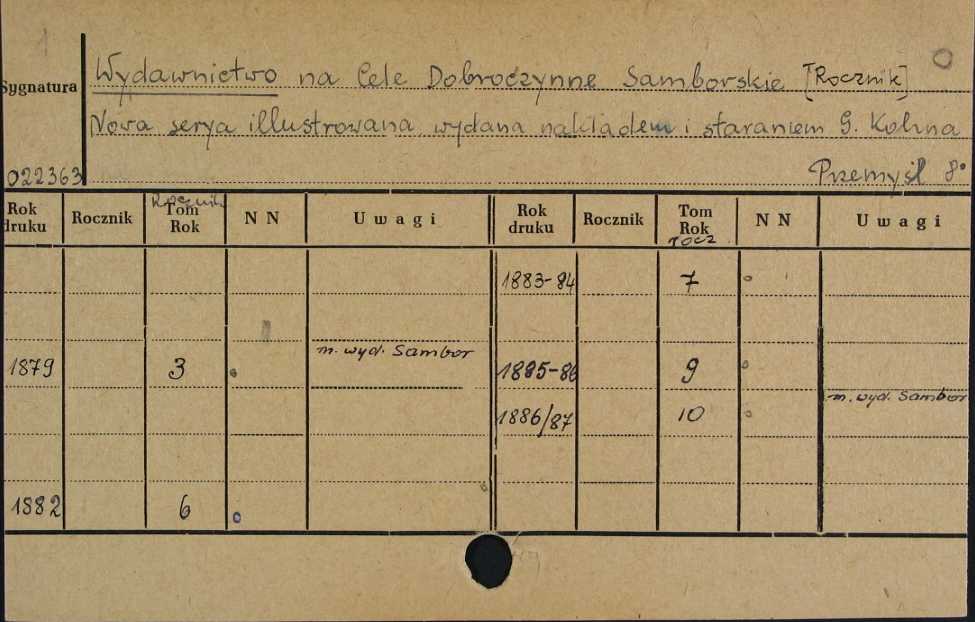 1
0
Wydawnictwo na Cele Dobroczynne Samborskie [Rocznik]
Sygnatura
Nowa serya illustrowana wydana nakładem i staraniem G. Kohna
Przemyśl 8°
022363
Rocznik
Rok druku Rocznik Tom Rok N N Uwagi Rok druku Rocznik Tom Rok N N Uwagi
rocz.
1883-84 7
1879 3 m. wyd. Sambor 1885-86 9
1886/87 10 m. wyd. Sambor
1882 6